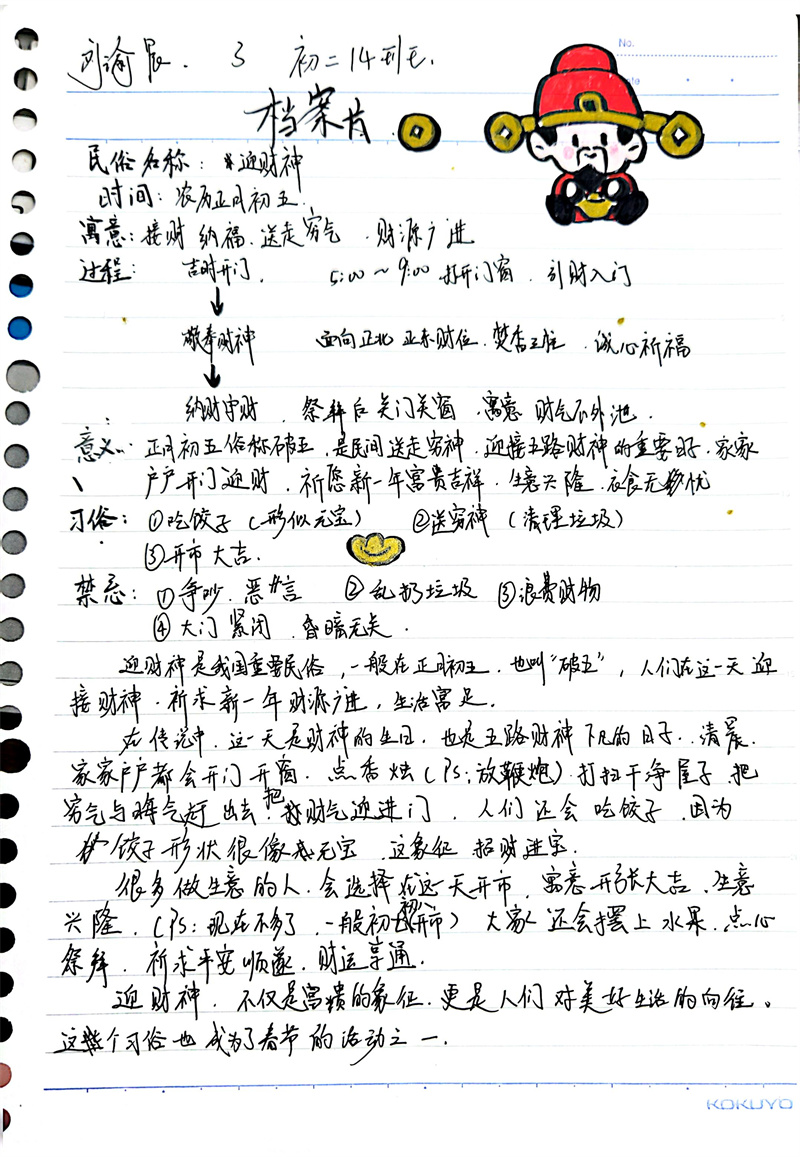 刘渝晨. 3 初二14班
No.
档案片
民俗名称: 迎财神
时间: 农历正月初五.
寓意: 接财 纳福. 送走穷气. 财源广进
过程: 吉时开门, 5:00～9:00 打开门窗. 引财入门
↓
敬奉财神 面向正北 正东财位. 焚香三柱. 诚心祈福
↓
纳财守财. 祭拜后关门关窗. 寓意 财气不外泄.
意义: 正月初五俗称破五, 是民间送走穷神. 迎接五路财神的重要日子. 家家
户户开门迎财. 祈愿新一年富贵吉祥. 生意兴隆. 衣食无忧
习俗: ①吃饺子 (形似元宝) ②送穷神 (清理垃圾)
③开市大吉.
禁忌: ①争吵. 恶言 ②乱扔垃圾 ③浪费财物
④大门紧闭. 昏暗无光.
迎财神是我国重要民俗, 一般在正月初五. 也叫“破五”, 人们在这一天迎
接财神. 祈求新一年财源广进, 生活富足.
在传说中. 这一天是财神的生日. 也是五路财神下凡的日子. 清晨.
家家户户都会开门开窗. 点香烛 (Ps: 放鞭炮) 打扫干净屋子. 把
穷气与晦气赶出去. 把财气迎进门. 人们还会吃饺子. 因为
饺子形状很像元宝. 这象征 招财进宝.
很多做生意的人. 会选择在这一天开市. 寓意开张大吉. 生意
兴隆. (Ps: 现在不多了. 一般初八开市) 大家还会摆上水果. 点心
祭拜. 祈求平安顺遂. 财运亨通.
迎财神. 不仅是富贵的象征. 更是人们对美好生活的向往。
这个习俗也成为了春节的活动之一.
KOKUYO